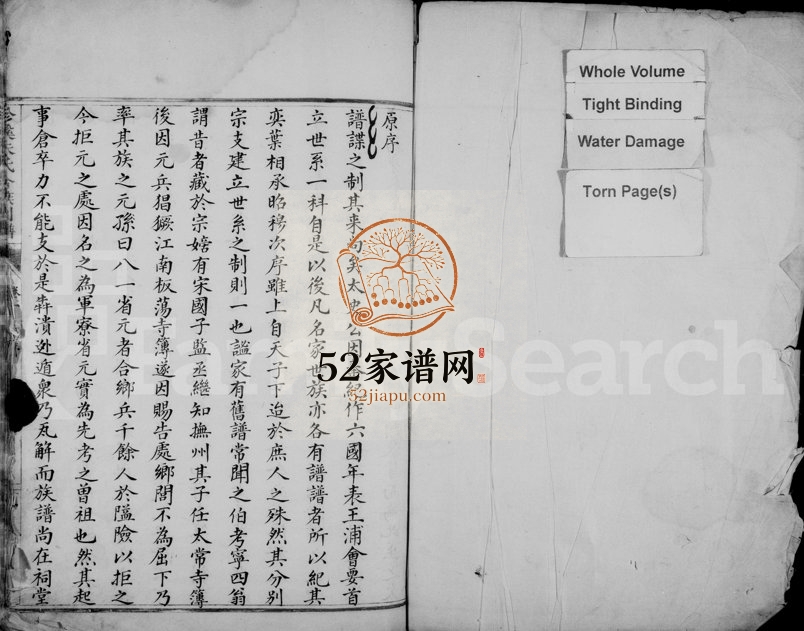 原序
譜諜之制其来尚矣太史公因本紀作六國年表王浦會要首
立世系一科自是以後凡名家世族亦各有譜譜者所以紀其
奕葉相承昭穆次序雖上自天子下迨於庶人之殊然其分別
宗支建立世系之制則一也謐家有舊譜常聞之伯考寧四翁
謂昔者藏於宗嬸有宋國子監丞繼知撫州其子任太常寺簿
後因元兵猖獗江南板蕩寺簿遂因賜告處鄉閭不為屈下乃
率其族之元孫曰八一省元者合鄉兵千餘人於隘險以拒之
今拒元之處因名之為軍寮省元實為先考之曽祖也然其起
事倉卒力不能支於是犇潰迯遁衆乃瓦解而族譜尚在祠堂
52家谱网
52jiapu.com
FamilySearch
Whole Volume
Tight Binding
Water Damage
Torn Page(s)